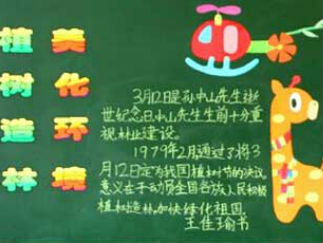 植树造林
美化环境
3月12日是孙中山先生逝
世纪念日,中山先生生前十分重
视林业建设。
1979年2月通过了将3
月12日定为我国植树节的决议
意义在于动员全国各族人民积极
植树造林,加快绿化祖国.
王佳瑜书